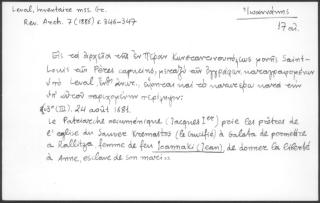 Leval, Inventaire mss. Gr.
Rev. Arch. 7 (1886) σ. 346-347
Ἰωαννάκης
17 αἰ.
Εἰς τὰ ἀρχεῖα τῆς ἐν Πέραν Κωνσταντινουπόλεως μονῆς Saint-
Louis τῶν Pères capucins, μεταξὺ τῶν ἐγγράφων καταγραφομένων
ὑπὸ Leval, ἔνθ' ἀνωτ., εὕρηται καὶ τὸ κατωτέρω κατὰ τὴν
ὑπ' αὐτοῦ παρεχομένην περίληψιν:
3° (III). 24 août 1681.
Le Patriarche œcuménique (Jacques Ier) prie les prêtres de
l'église du Sauveur Kremastos (le Crucifié) à Galata de permettre
à Kallitza femme de feu Ioannaki (Jean), de donner la liberté
à Anne, esclave de son mari